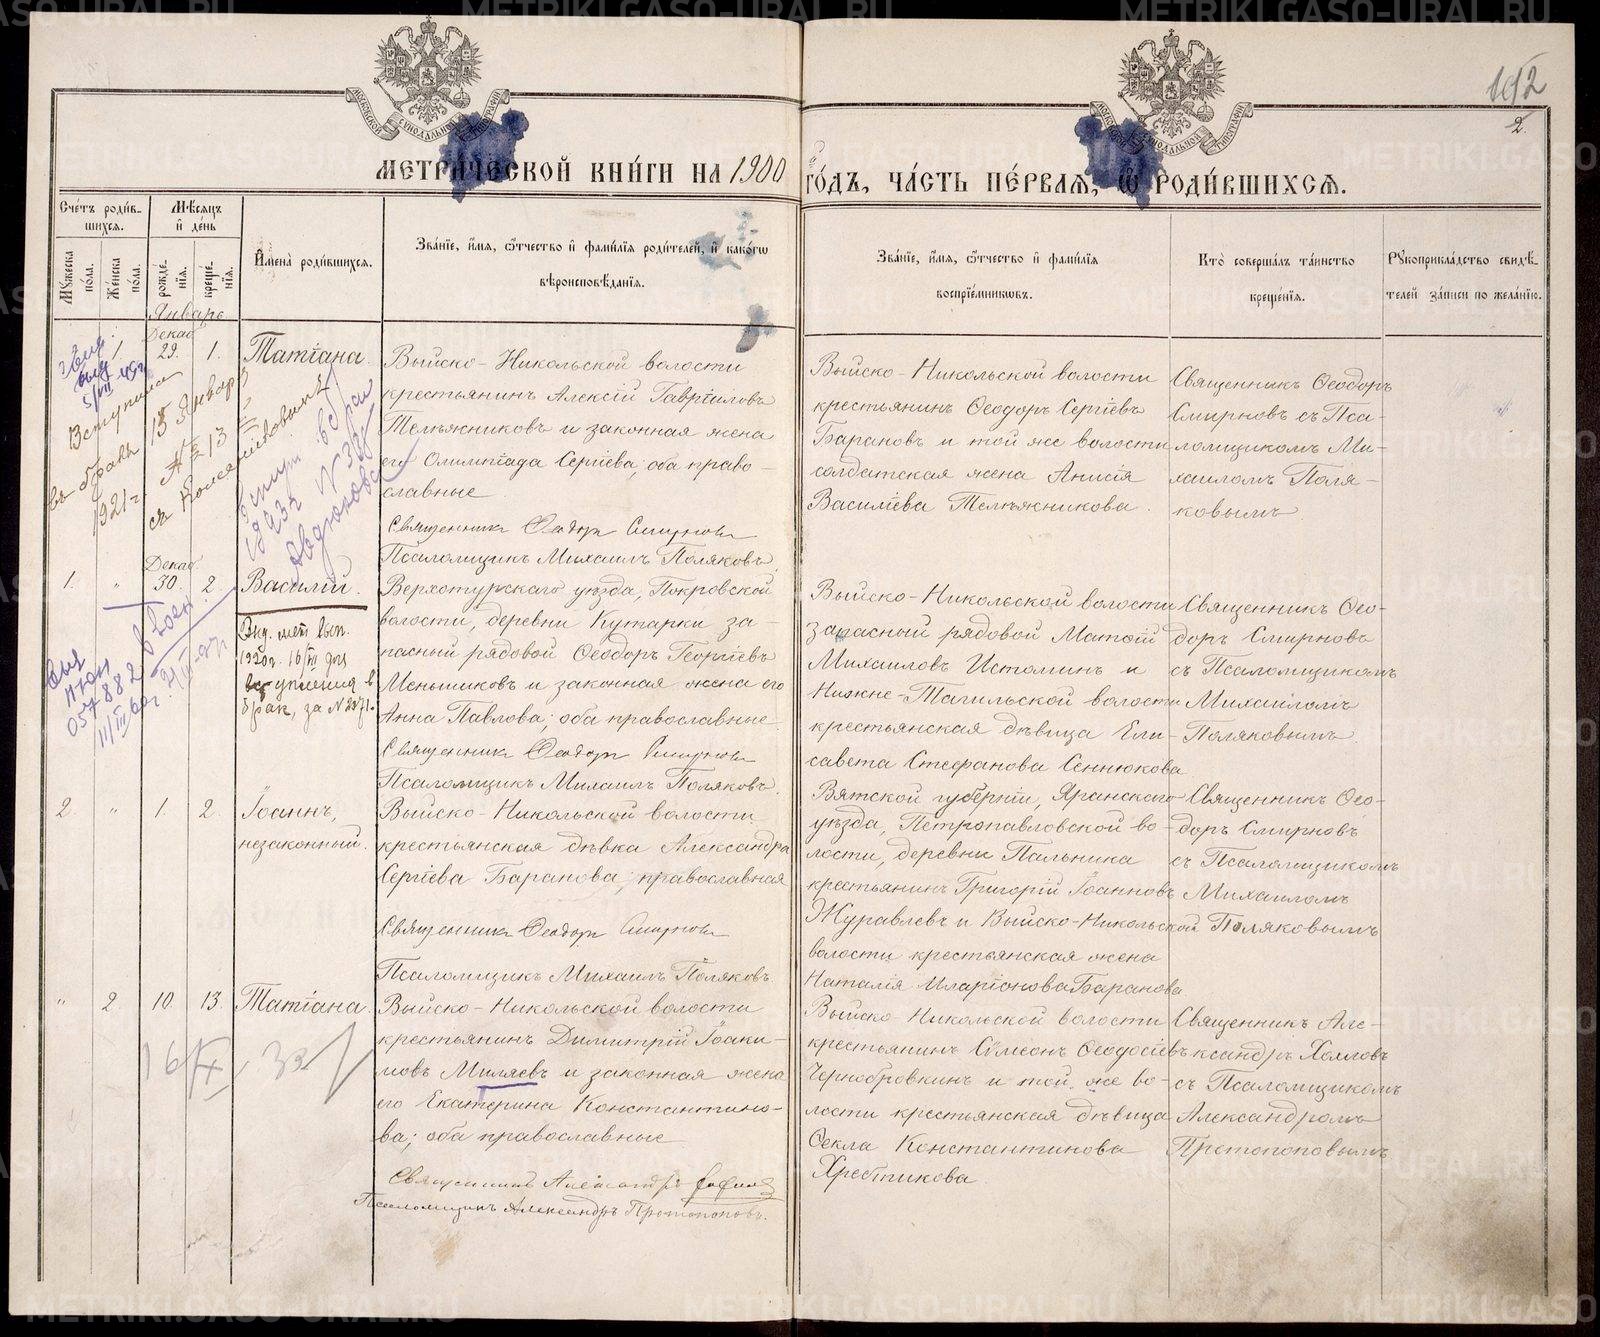 192
2.
МОСКОВСКОЙ СѴНОДАЛЬНОЙ ТИПОГРАФІИ
МОСКОВСКОЙ СѴНОДАЛЬНОЙ ТИПОГРАФІИ
МЕТРИ́ЧЕСКОЙ КНИ́ГИ НА 1900
ГО́ДЪ, ЧА́СТЬ ПЕ́РВАЯ, Ѿ РОДИ́ВШИХСЯ.
Сче́тъ роди́в-
шихся.
Мѣсяцъ
и҆ де́нь
Мꙋ́жеска по́ла.
Же́нска по́ла.
рожде́-
нїѧ.
креще́-
нїѧ.
И҆мена̀ роди́вшихсѧ.
Зва́нїе, и҆́мѧ, ѻ҆́тчество и҆ фами́лїѧ роди́телей, и҆ како́гѡ
вѣроисповѣ́данїѧ.
Зва́нїе, и҆́мѧ, ѻ҆́тчество и҆ фами́лїѧ
воспрїе́мникѡвъ.
Кто̀ соверша́лъ та́инство
креще́нїѧ.
Рꙋкоприкла́дство свидѣ́-
телей за́писи по жела́нїю.
Январь
1
Декаб.
29.
1.
Татіана.
Выйско-Никольской волости
крестьянинъ Алексій Гавріиловъ
Тележниковъ и законная жена
его Олимпіада Сергіева; оба право-
славные
Священникъ Ѳеодоръ Смирновъ
Псаломщикъ Михаилъ Поляковъ.
Выйско-Никольской волости
крестьянинъ Ѳеодоръ Сергіевъ
Барановъ и той же волости
солдатская жена Анисія
Василіева Тележникова.
Священникъ Ѳеодоръ
Смирновъ съ Пса-
ломщикомъ Ми-
хаиломъ Поля-
ковымъ
Вступила
въ бракъ 15 Января
1921 г. № 13
1.
"
Декаб.
30.
2
Василій.
Верхотурскаго уѣзда, Покровской
волости, деревни Кутарки за-
пасный рядовой Ѳеодоръ Георгіевъ
Меньшиковъ и законная жена его
Анна Павлова; оба православные
Священникъ Ѳеодоръ Смирновъ
Псаломщикъ Михаилъ Поляковъ.
Выйско-Никольской волости
запасный рядовой Матѳій
Михаиловъ Истоминъ и
Нижне-Тагильской волости
крестьянская дѣвица Ели-
савета Стефанова Сеннюкова
Священникъ Ѳео-
доръ Смирновъ
съ Псаломщикомъ
Михаиломъ
Поляковымъ.
Выд. мет. вып.
1920 г. 16/III для
вступления в
брак, за № 2271.
2.
"
1.
2
Іоаннъ,
незаконный.
Выйско-Никольской волости
крестьянская дѣвка Александра
Сергіева Баранова; православная
Священникъ Ѳеодоръ Смирновъ
Псаломщикъ Михаилъ Поляковъ.
Вятской губерніи, Яранскаго
уѣзда, Петропавловской во-
лости, деревни Пальника
крестьянинъ Григорій Іоанновъ
Журавлевъ и Выйско-Никольской
волости крестьянская жена
Наталія Иларіонова Баранова
Священникъ Ѳео-
доръ Смирновъ
съ Псаломщикомъ
Михаиломъ
Поляковымъ
"
2.
10.
13.
Татіана.
Выйско-Никольской волости
крестьянинъ Димитрій Іоаки-
мовъ Миляевъ и законная жена
его Екатерина Константино-
ва; оба православные
Священникъ Александръ
Псаломщикъ Александръ Протопоповъ.
Выйско-Никольской волости
крестьянинъ Сѵмеонъ Ѳеодосіевъ
Чернобровкинъ и той же во-
лости крестьянская дѣвица
Ѳекла Константинова
Хребтикова
Священникъ Але-
ксандръ Холмовъ
съ Псаломщикомъ
Александромъ
Протопоповымъ
METRIKI.GASO-URAL.RU